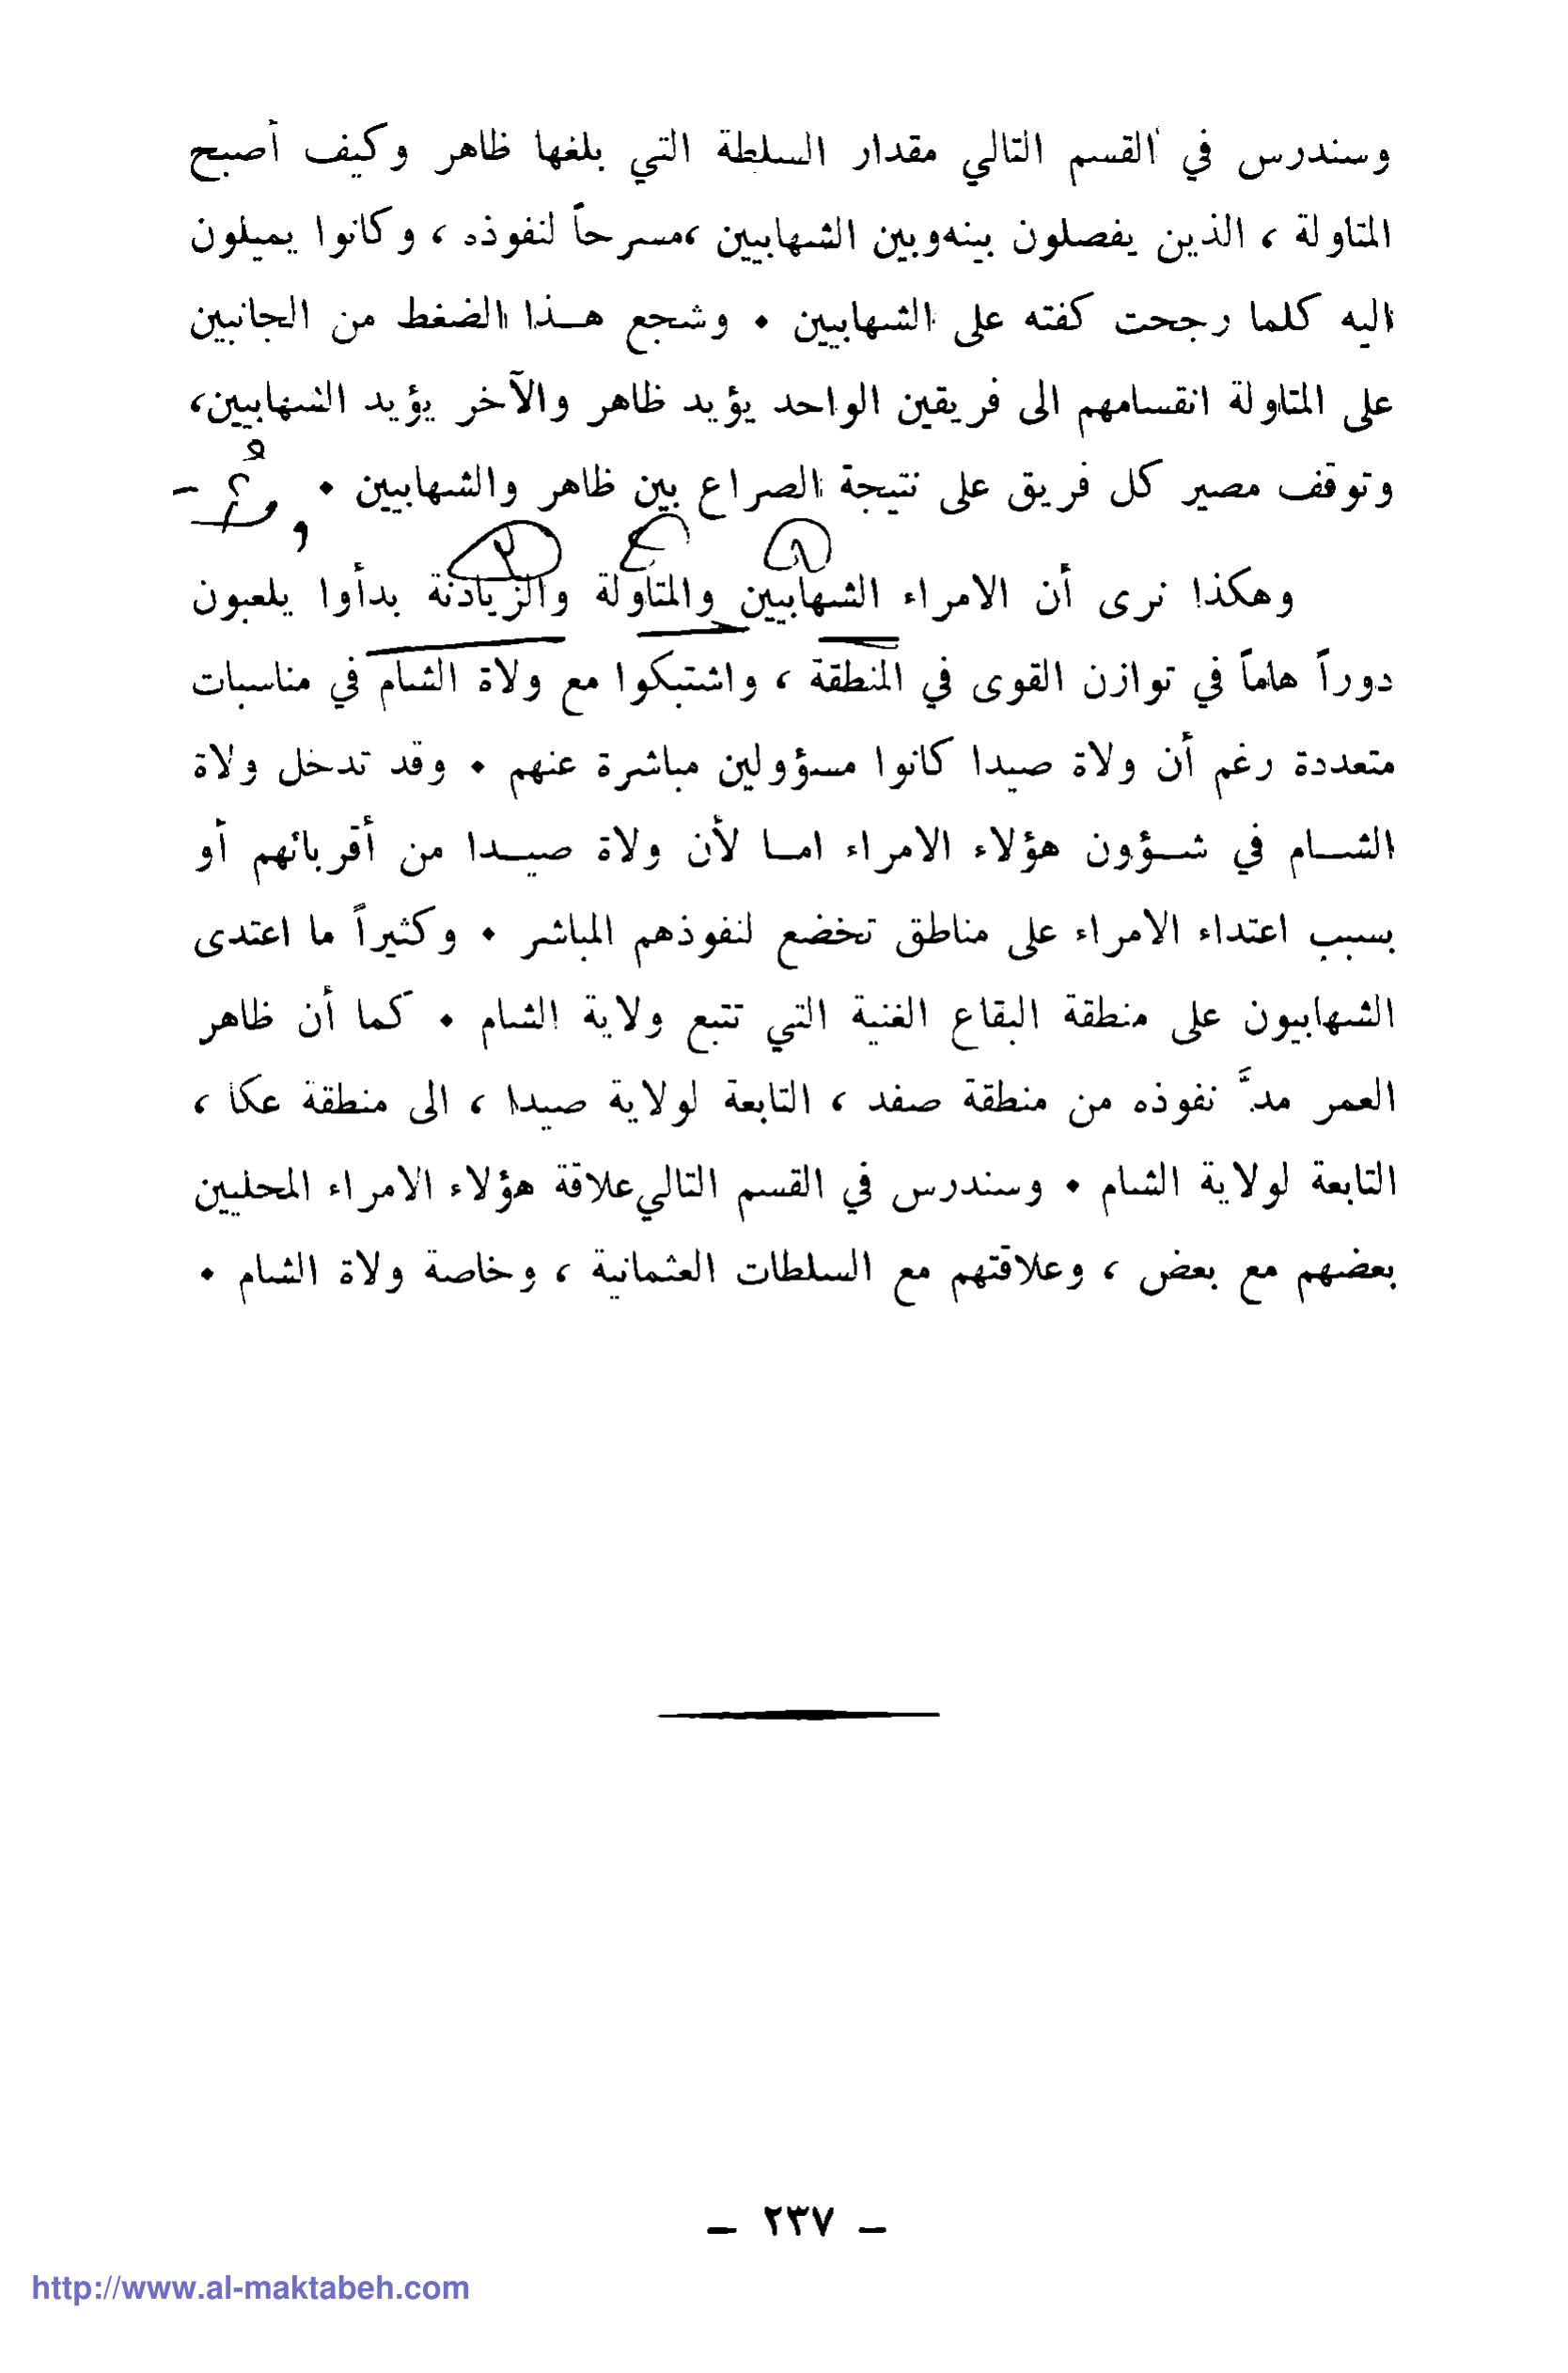 وسندرس في القسم التالي مقدار السلطة التي بلغها ظاهر وكيف أصبح
المتاولة ، الذين يفصلون بينه وبين الشهابيين ،مسرحاً لنفوذه ، وكانوا يميلون
اليه كلما رجحت كفته على الشهابيين . وشجع هـذا الضغط من الجانبين
على المتاولة انقسامهم الى فريقين الواحد يؤيد ظاهر والآخر يؤيد الشهابيين،
وتوقف مصير كل فريق على نتيجة الصراع بين ظاهر والشهابيين .
وهكذا نرى أن الامراء الشهابيين والمتاولة والزيادنة بدأوا يلعبون
دوراً هاماً في توازن القوى في المنطقة ، واشتبكوا مع ولاة الشام في مناسبات
متعددة رغم أن ولاة صيدا كانوا مسؤولين مباشرة عنهم . وقد تدخل ولاة
الشـام في شـؤون هؤلاء الامراء امـا لأن ولاة صيـدا من أقربائهم أو
بسبب اعتداء الامراء على مناطق تخضع لنفوذهم المباشر . وكثيراً ما اعتدى
الشهابيون على منطقة البقاع الغنية التي تتبع ولاية الشام . كما أن ظاهر
العمر مدَّ نفوذه من منطقة صفد ، التابعة لولاية صيدا ، الى منطقة عكا ،
التابعة لولاية الشام . وسندرس في القسم التالي علاقة هؤلاء الامراء المحليين
بعضهم مع بعض ، وعلاقتهم مع السلطات العثمانية ، وخاصة ولاة الشام .
- ٢٣٧ -
http://www.al-maktabeh.com